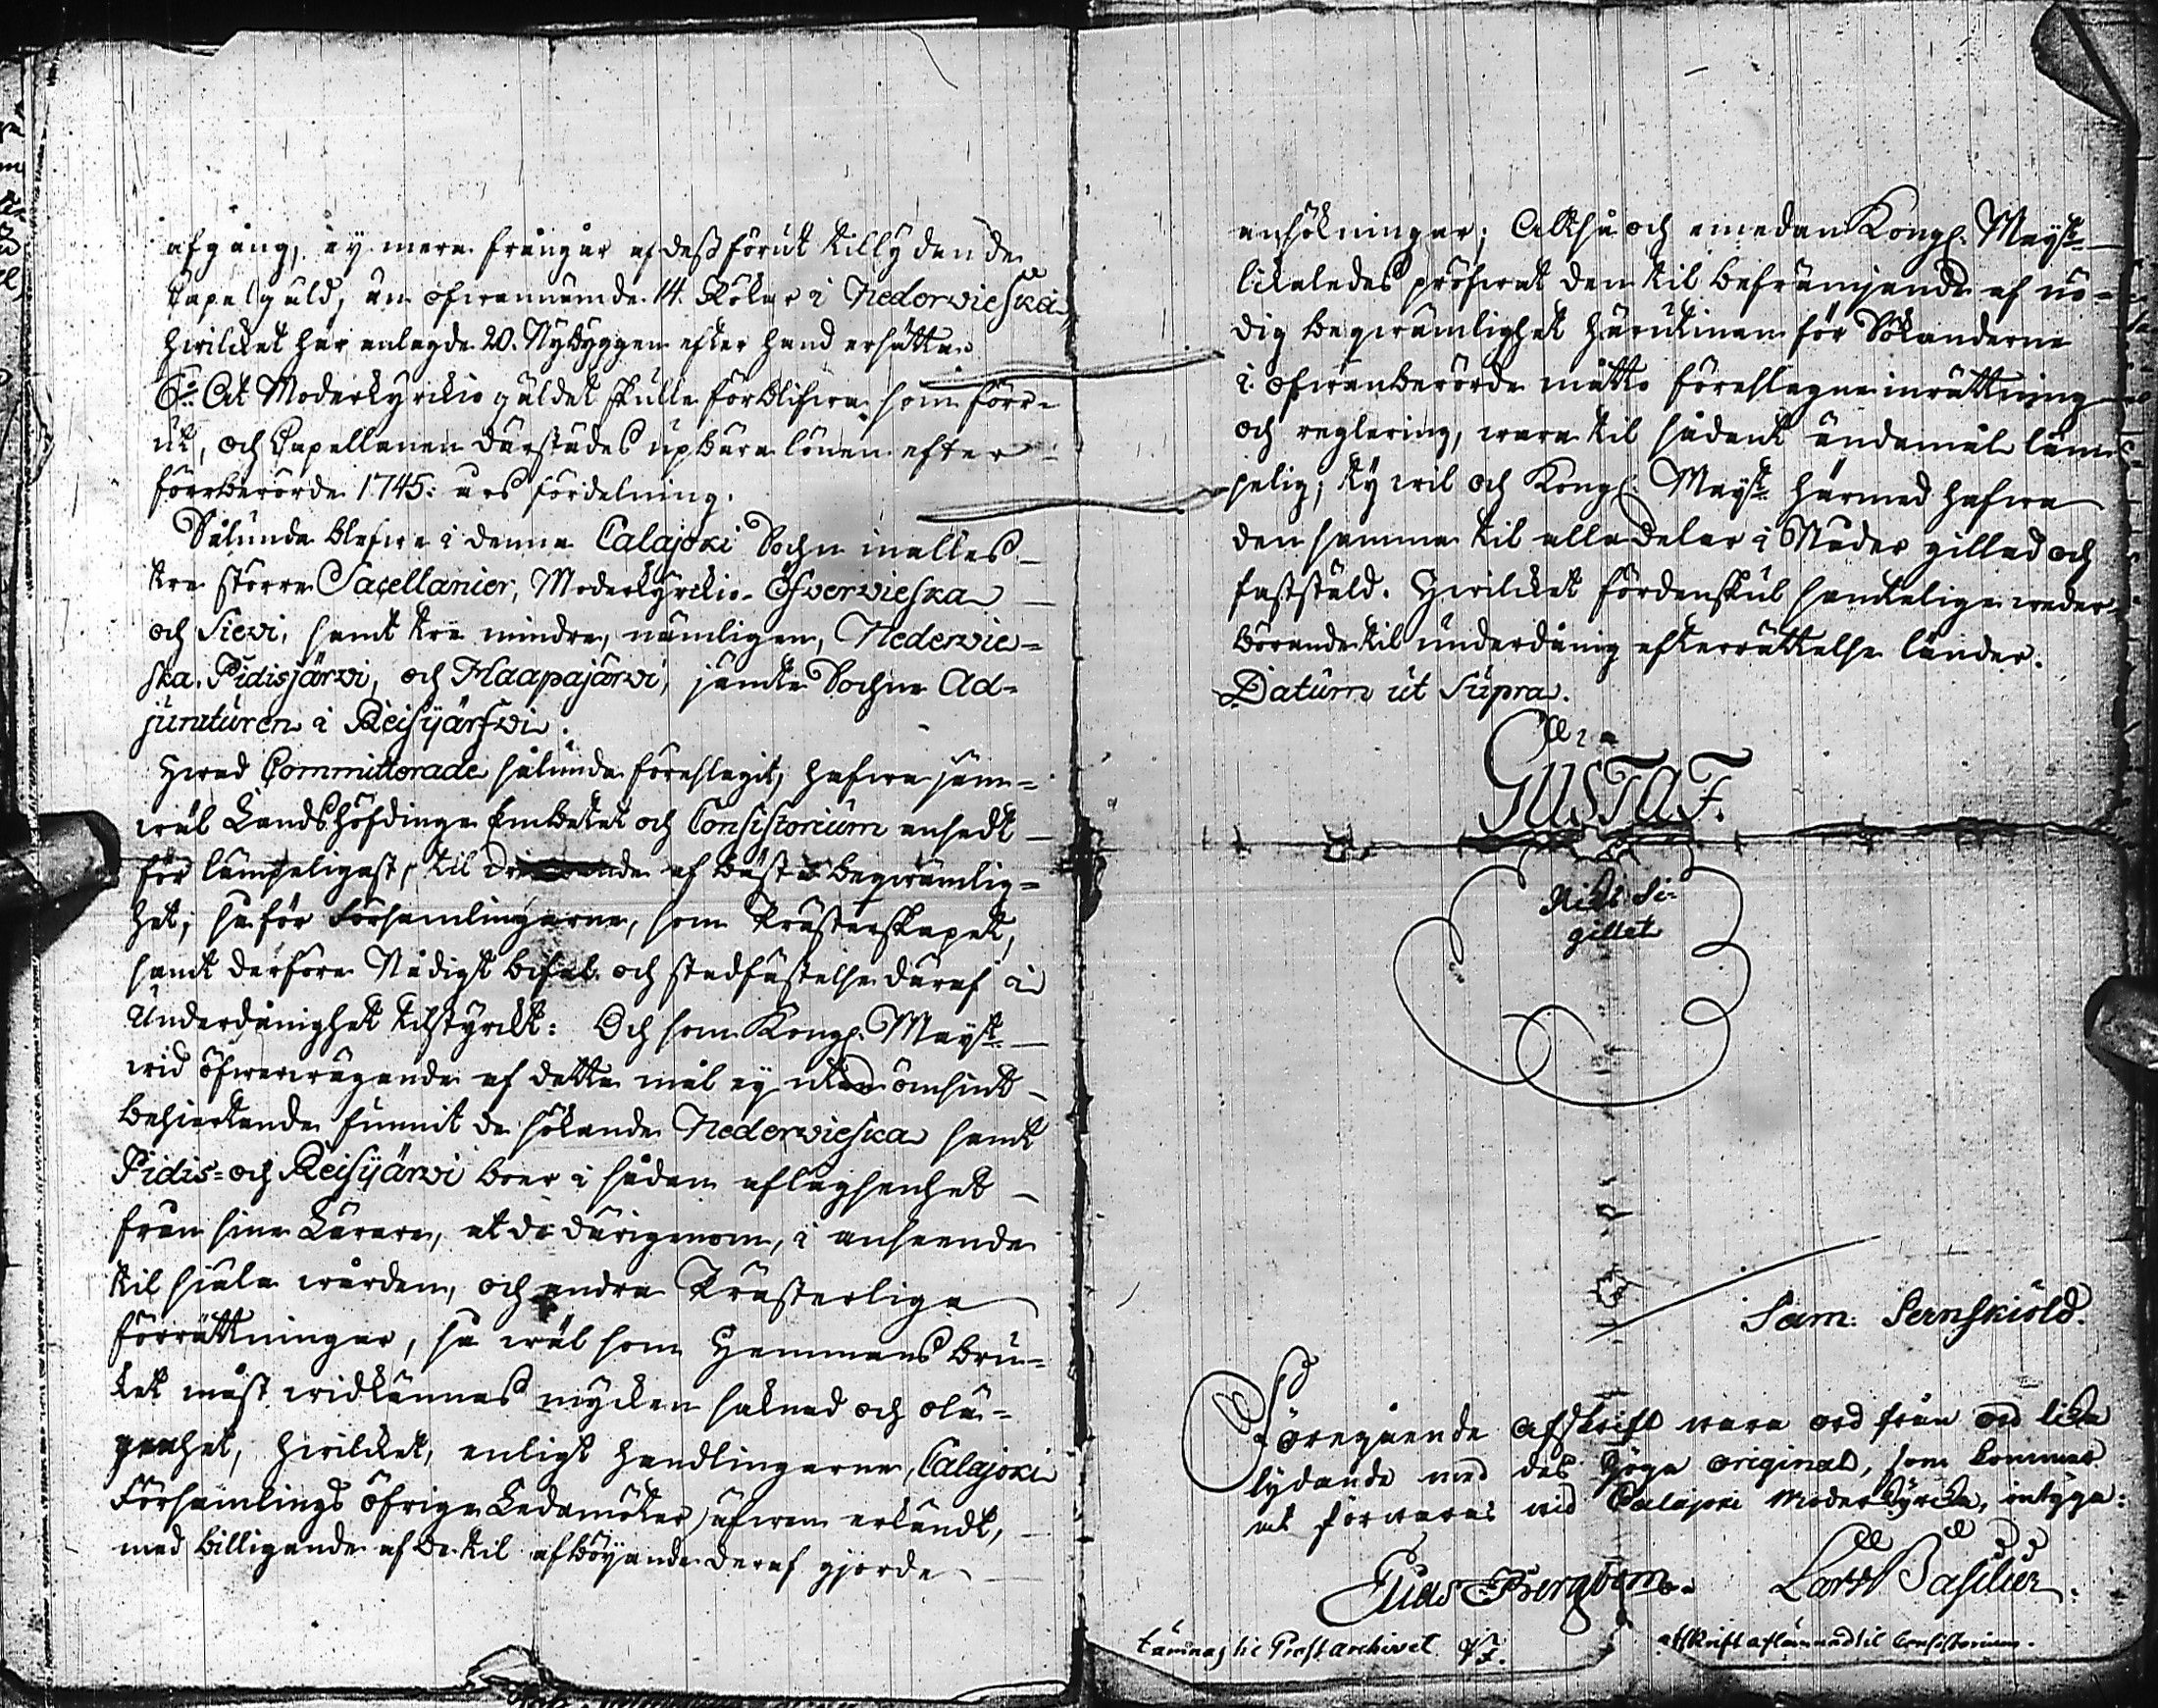 afgång, ey mera frångår af dess förut tillydande
Capelgäld, än ofwannämde 14. Rökar i Nederwieska,
hwilcket här anlagde 20. Nybyggen efter hand ersätta.
6:o At Moderkyrckio gäldet skulle förblifwa som förr-
ut, och Capellanen därstädes upbära lönen efter
förrberörde 1745: års fördelning.
Sålunda blefwe i denna Calajoki Sochn inalles
tre större Sacellanier, Moderkyrckio- Öfverwieska
och Siewi, samt tre mindre, nämligen, Nederwie-
ska, Pidisjärwi, och Haapajärwi, jämte Sochne Ad-
juncturen i Reisijärfwi.
Hwad Committerade sålunda föreslagit, hafwa jäm-
wäl Landshöfdinge Embetet och Consistorium ansedt
för lämpeligast, til af bästa beqwämlig-
het, så för Församlingarne, som Prästerskapet,
samt derföre Nådigt bifal och stadfästelse däraf i
Underdånighet tilstyrckt: Och som Kongl. Mayt
wid öfwerwägande af detta mål ey utan ömsint
behiertande funnit de sökande Nederwieska samt
Pidis- och Reisijärwi boer i sådan aflägsenhet
från sine Lärare, at de därigenom, i anseende
til siäla wården, och andra Prästerliga
förrättningar, så wäl som Hemmans bru-
ket måst widkännas mycken saknad och olä-
genhet, hwilcket, enligt handlingarne, Calajoki
Församlings öfrige Ledamöter äfwen erkändt,
med billigande af de til afböyande deraf gjorde
ansökningar; Altså och emedan Kongl. Mayt
likaledes pröfwat den til befrämjande af nö-
dig beqwämlighet härutinnan för Sökanderne
i ofwanberörde måtto föreslagne inrättning
och reglering, wara til sådant ändamål läm-
pelig; ty wil och Kongl. Mayt härmed hafwa
den samma til alla delar i Nåder gillad och
faststäld. Hwilcket fördenskul samtelige weder-
börande til underdånig efterrättelse länder.
Datum ut Supra.
GUSTAF.
Riks Si-
gillet
Sam: Pernskiöld.
Föregående afskrift wara ord från ord lika
lydande med des Höga original, som kommer
at förwaras wid Calajoki Moderkyrcka, intyga:
Elias Bergbom. Lars Basilier.
lämnas til Prost archivet
afskrift aflämnad til Consistorium.